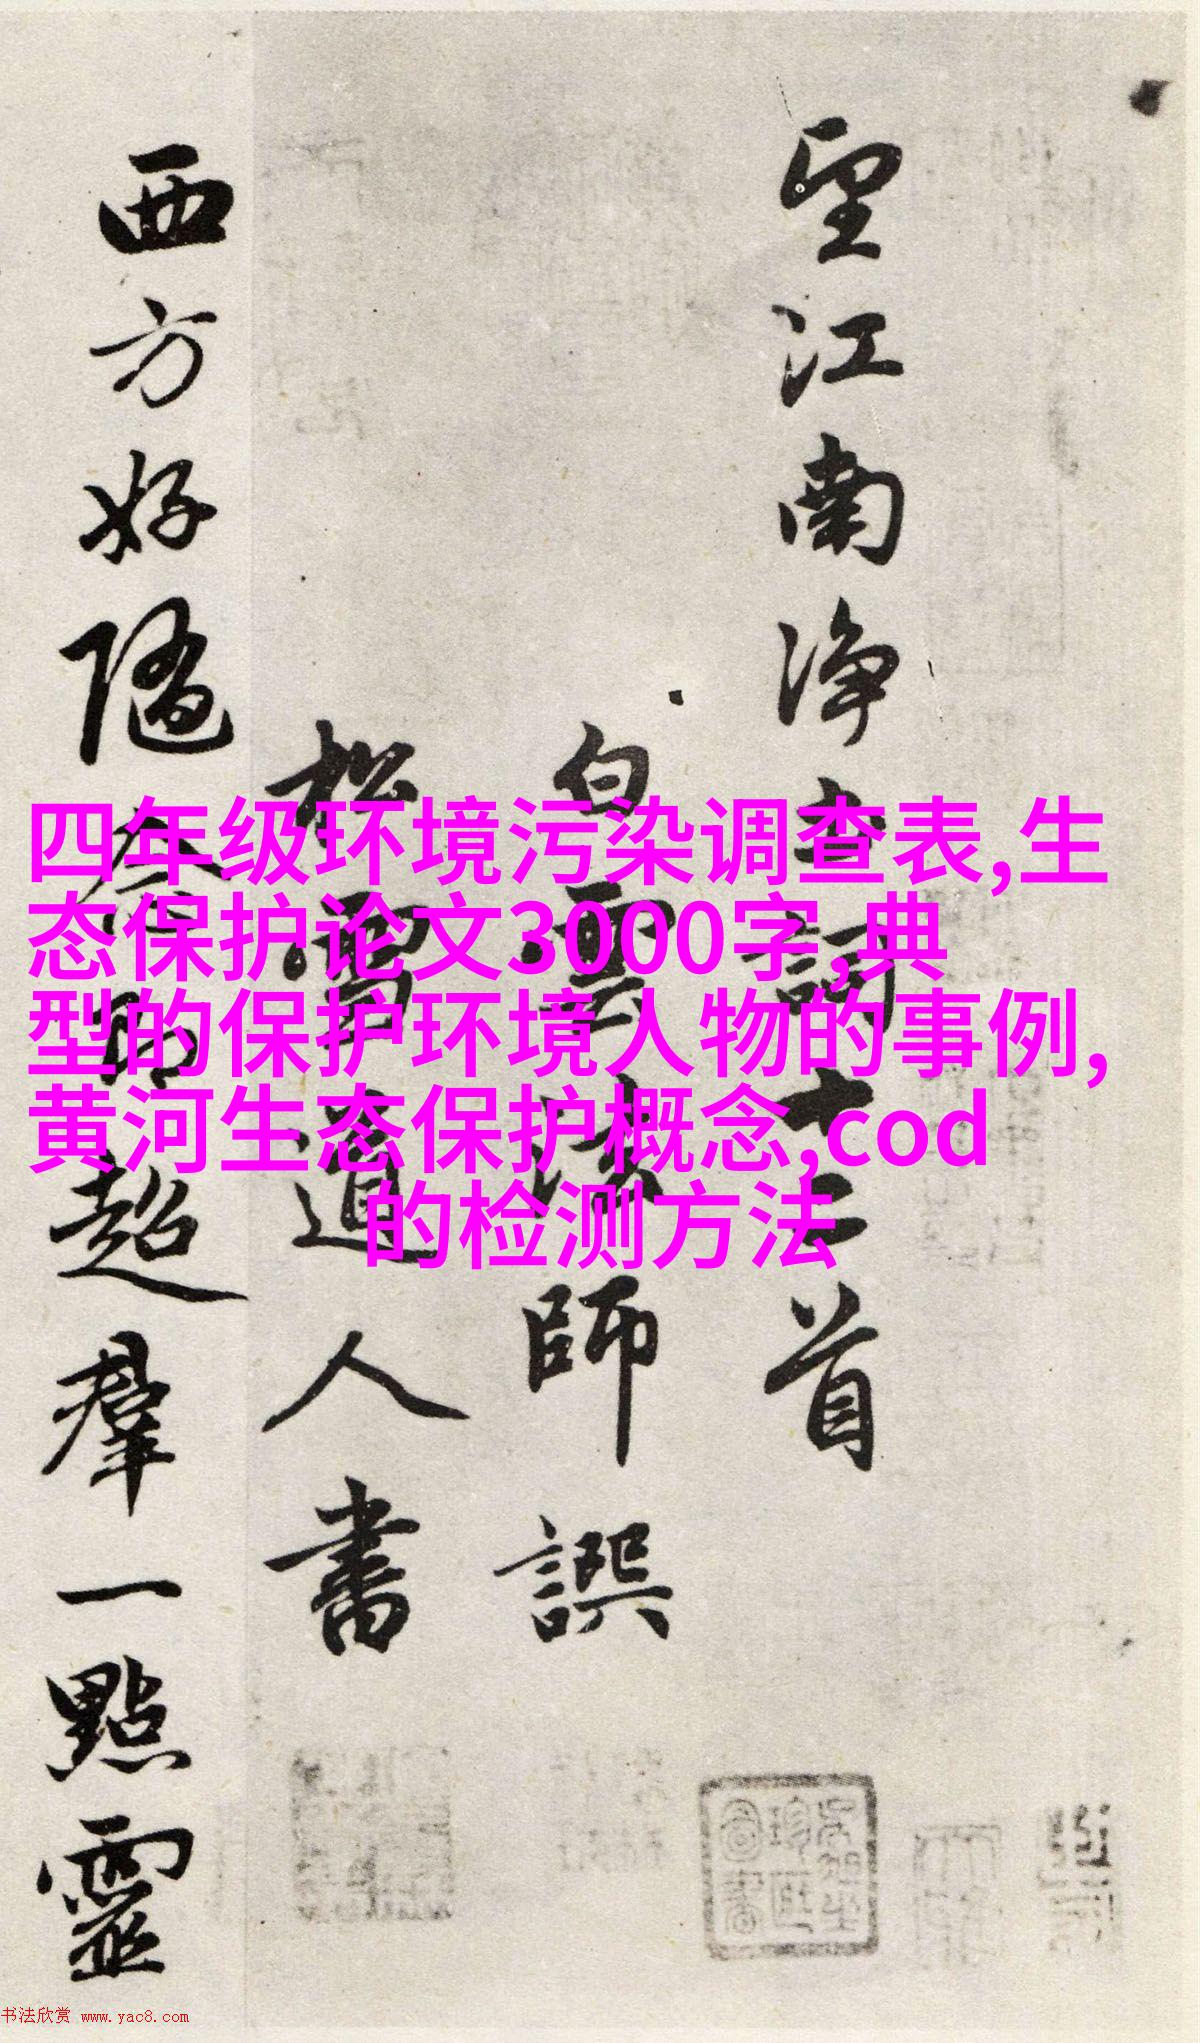 望江南净土詞十二首
白雲法師譔
松雪道人書
西方好隨念即超羣一點靈
四年级环境污染调查表,生
态保护论文3000字,典
型的保护环境人物的事例,
黄河生态保护概念,cod
的检测方法
书法欣赏 www.yac8.com